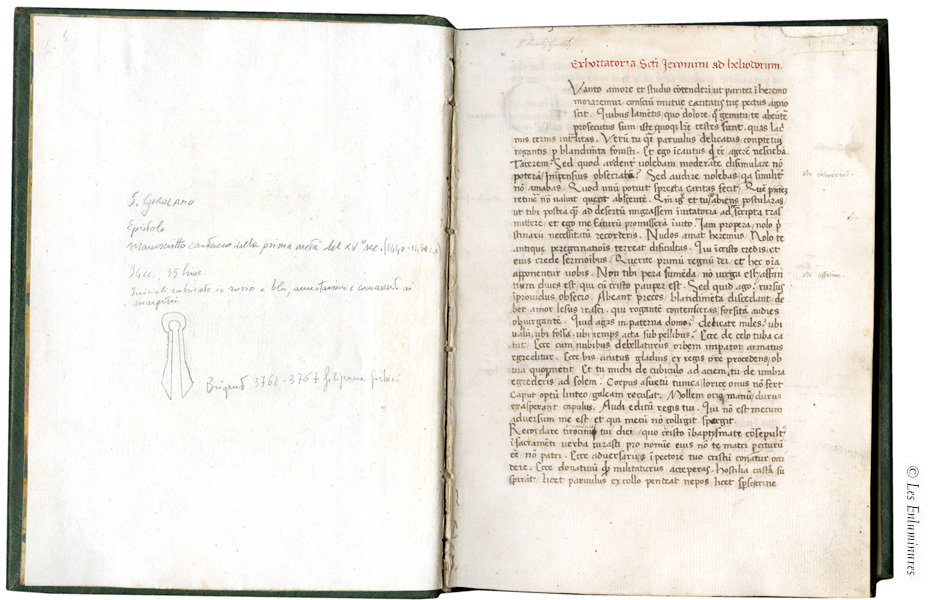 S. GIROLAMO
Epistole
manoscritto cartaceo della prima metà del XV° sec.
35 linee
Iniziali rubricate in rosso e blu, annotazioni e commenti ai
margini
Briquet 3762-3767 filigrana forbici
Exhortatoria Scti Jeronimi ad heliodorum.
Vanto amore et studio cōtenderī ut pariter ī heremo
moraremur consciū mutue caritatis tue pectus agno
scit. Quibus lamētis, quo dolore, q̄ gemitu te abeūtē
prosecutus sum iste quoque lr̄e testes sunt. quas lac
mis cernis
rogantis p blandimta fouisti. Et ego īcautus
Tacerem? Sed quod ardent volebam moderate disimulare nō
poterā Impensius obsecrarē? Sed audire nolebas qa similit
nō amabas. Quod unū potuit spreta caritas fecit. Quē
retine nō valuit querit absentē.
ut tibi postea q̄ ad desertū migrassem inuitatoria ad scripta tras
mitterē, et ego me facturū promiserā Inuito. Iam propera, nolo
stinarū necessitatū recorderis. Nudos amat heremus. Nolo te
antique peregrinationis terreat dificultas. Qui ī cristo credis et
eius crede sermoibus. Querite primū regnū dei, et hec oīa
apponentur uobis. Non tibi pera sumēda, nō uirga est, afflu
tum diues est, qui cū cristo pauper est. Sed quid ago? rursus
īprouidus obsecro. Abeant preces, blandimēta discedant, de
bet amor lesus irasci. qui rogantē contenseras forsitā audies
obiurgantē. Quid agis in paterna domo? delicate miles? ubi
uallū, ubi fossa, ubi iemps acta sub pellibus? Ecce de celo tuba ca
nit. Ecce cum nubibus debellaturus orbem impator armatus
egreditur. Ecce bis acutus gladius ex regis ore procedens, ob
uia queq metit. Et tu michi de cubiculo ad aciem, tu de umbra
egrederis ad solem? Corpus asuetū tunica, lorice onus nō fert
Caput optū linteo galeam recusat. Mollem ocio manū, durus
exasperant capulus. Audi edictū regis tui. Qui nō est mecum
aduersum me est. et qui mecū nō colligit spergit.
Recordare tirocinij tui diē, quo cristo ī baptismate cōsepult
ī sacramēti uerba iurasti, pro nomie eius nō te matri pciturū
eē nō patri. Ecce aduersarius ī pectore tuo cristū conatur occi
dere. Ecce donatiuū q̄ militaturus acceperas, hostilia castra su
spirāt, licet paruulus ex collo pendeat nepos, licet
© Les Enluminures